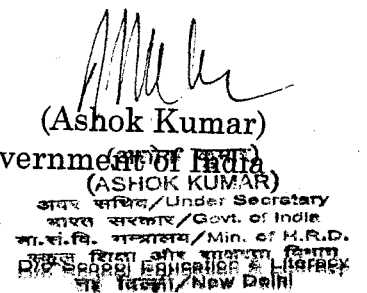 (Ashok Kumar)
vernment of India
(ASHOK KUMAR)
अवर सचिव/Under Secretary
भारत सरकार/Govt. of India
मा.सं.वि. मन्त्रालय/Min. of H.R.D.
स्कूल शिक्षा और साक्षरता विभाग
D/o School Education & Literacy
नई दिल्ली/New Delhi